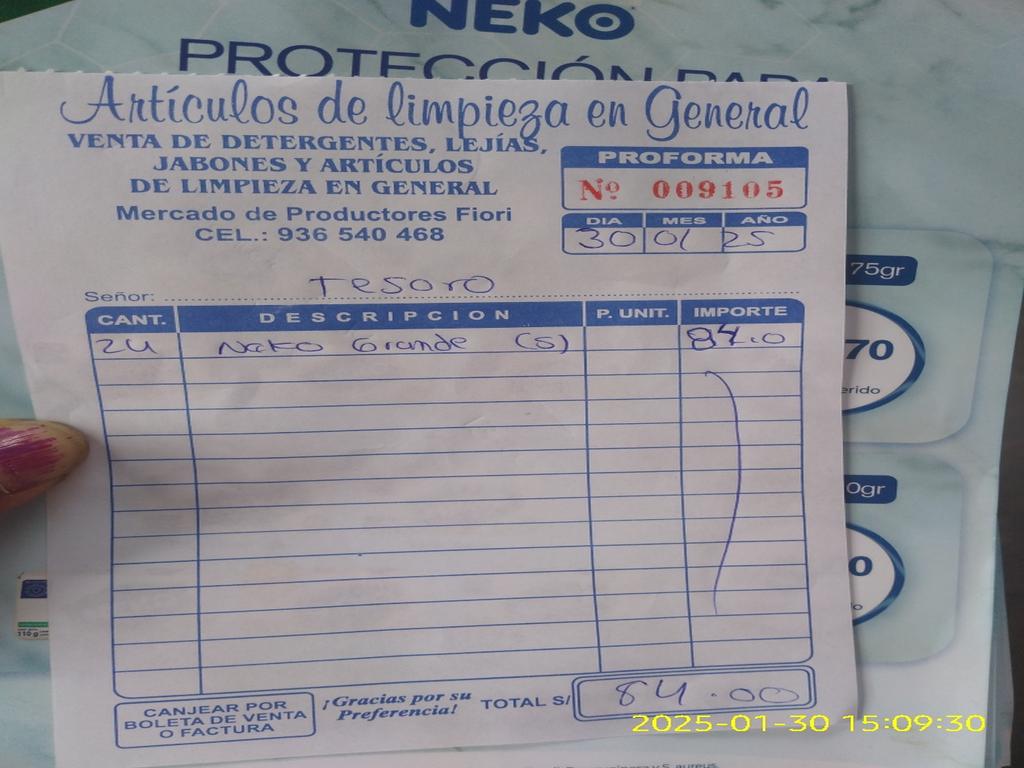 NEKO
PROTECCIÓN PARA
Artículos de limpieza en General
VENTA DE DETERGENTES, LEJÍAS,
JABONES Y ARTÍCULOS
DE LIMPIEZA EN GENERAL
Mercado de Productores Fiori
CEL.: 936 540 468
PROFORMA
Nº 009105
DIA MES AÑO
30 01 25
Señor: Tesoro
CANT. DESCRIPCION P. UNIT. IMPORTE
24 Neko Grande (S) 84.0
CANJEAR POR
BOLETA DE VENTA
O FACTURA
¡Gracias por su
Preferencia!
TOTAL S/ 84.00
75gr
70
erido
0gr
0
110 g
S. aureus
2025-01-30 15:09:30